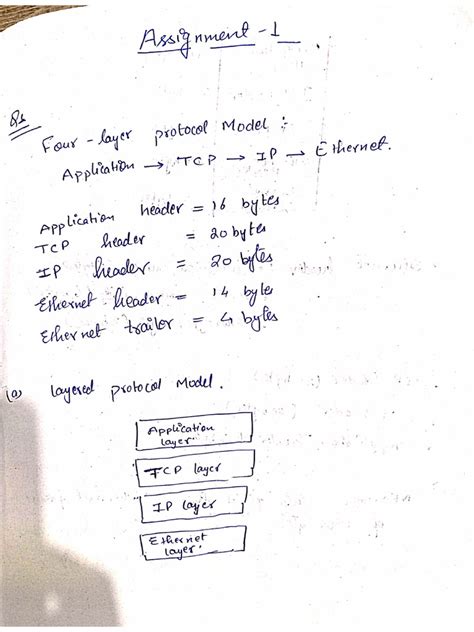 Assignment - 1
Q1
Four - layer protocol Model :
Application → TCP → IP → Ethernet.
Application header = 16 bytes
TCP header = 20 bytes
IP header = 20 bytes
Ethernet header = 14 bytes
Ethernet trailor = 4 bytes
(a) layered protocol Model.
Application
layer.
TCP layer
IP layer
Ethernet
layer.